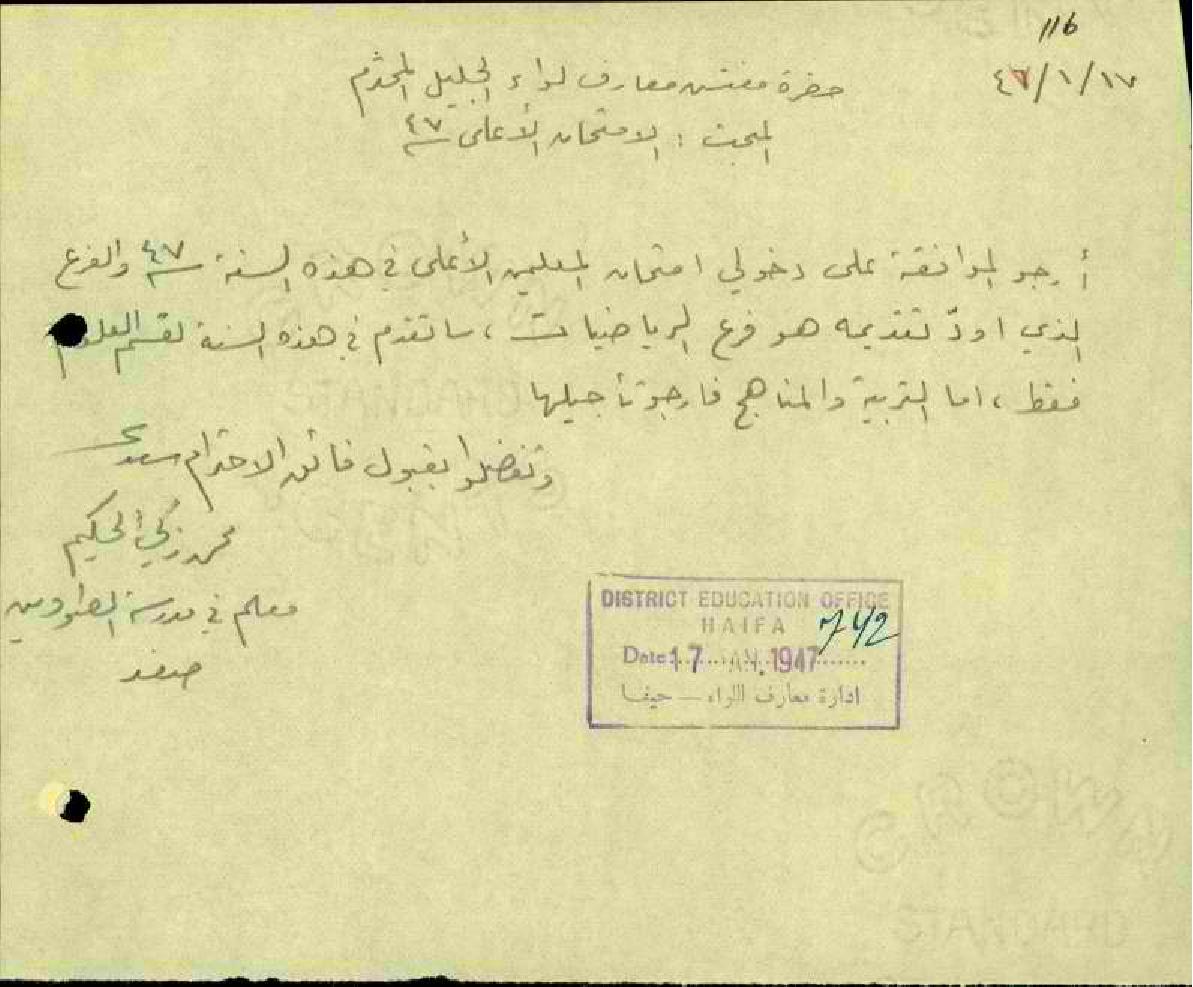 116
٤٧/١/١٧
حضرة مفتش معارف لواء الجليل المحترم
المبحث : الامتحان الأعلى ٤٧
أرجو الموافقة على دخولي امتحان المعلمين الأعلى في هذه السنة ٤٧ والفرع
الذي اودّ تقديمه هو فرع الرياضيات ، ساتقدم في هذه السنة لقسم العلوم
فقط ، اما التربية والمناهج فارجو تأجيلها
وتفضلوا بقبول فائق الاحترام سيدي
محمد زكي الحكيم
معلم في مدرسة
صفد
DISTRICT EDUCATION OFFICE
HAIFA
742
Date 17 JAN. 1947
ادارة معارف اللواء — حيفا